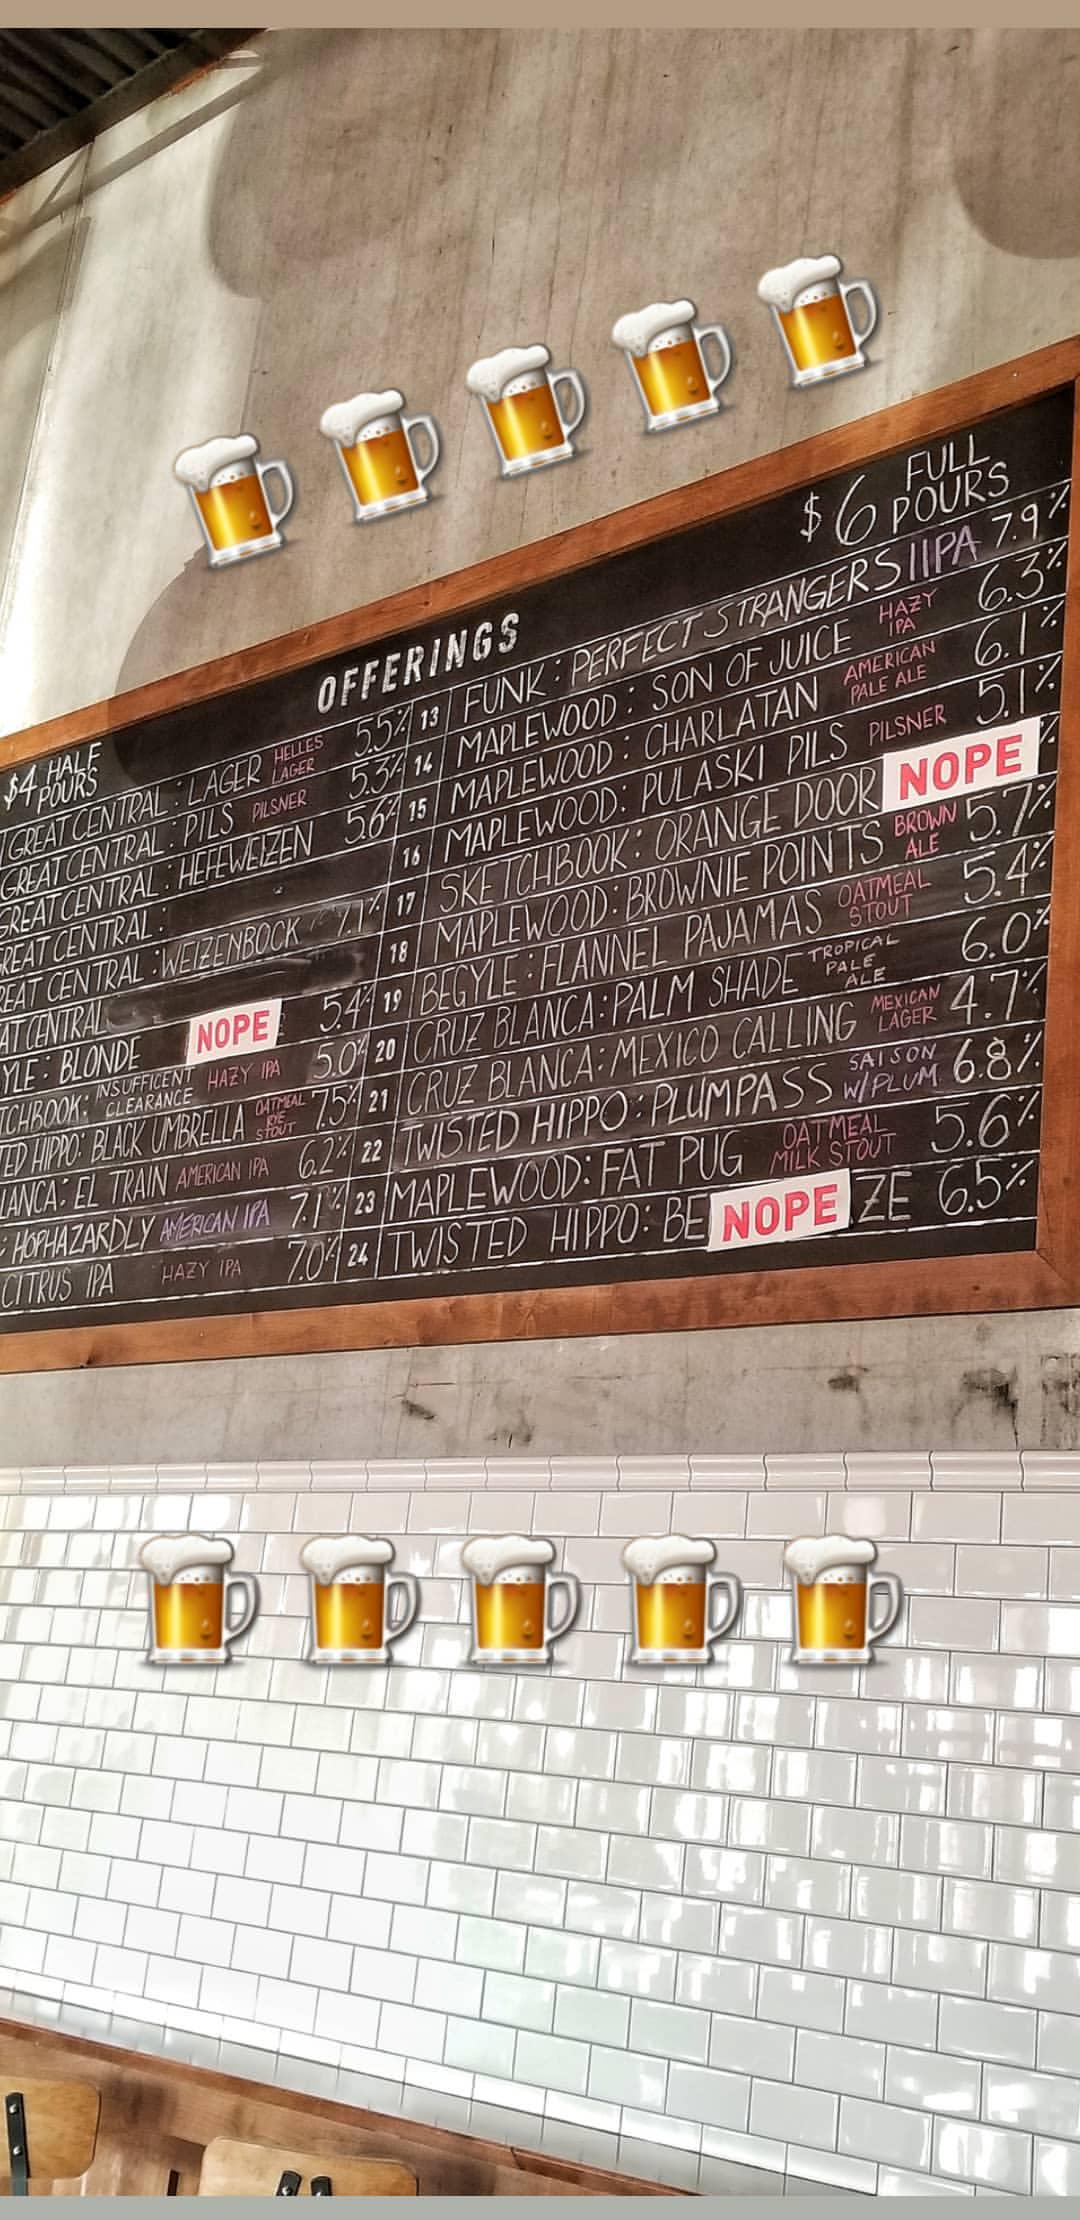 OFFERINGS
$4 HALF POURS
$6 FULL POURS
GREAT CENTRAL: LAGER HELLES LAGER 5.5%
GREAT CENTRAL: PILS PILSNER 5.3%
GREAT CENTRAL: HEFEWEIZEN 5.6%
REAT CENTRAL:
REAT CENTRAL: WEIZENBOCK 7.1%
AT CENTRAL
YLE: BLONDE NOPE 5.4%
TCHBOOK: INSUFFICENT CLEARANCE HAZY IPA 5.0%
TED HIPPO: BLACK UMBRELLA OATMEAL RYE STOUT 7.5%
LANCA: EL TRAIN AMERICAN IPA 6.2%
: HOPHAZARDLY AMERICAN IPA 7.1%
CITRUS IPA HAZY IPA 7.0%
13 FUNK: PERFECT STRANGERS IIPA 7.9%
14 MAPLEWOOD: SON OF JUICE HAZY IPA 6.3%
15 MAPLEWOOD: CHARLATAN AMERICAN PALE ALE 6.1%
16 MAPLEWOOD: PULASKI PILS PILSNER 5.1%
17 SKETCHBOOK: ORANGE DOOR NOPE %
18 MAPLEWOOD: BROWNIE POINTS BROWN ALE 5.7%
19 BEGYLE: FLANNEL PAJAMAS OATMEAL STOUT 5.4%
20 CRUZ BLANCA: PALM SHADE TROPICAL PALE ALE 6.0%
21 CRUZ BLANCA: MEXICO CALLING MEXICAN LAGER 4.7%
22 TWISTED HIPPO: PLUMPASS SAISON W/PLUM 6.8%
23 MAPLEWOOD: FAT PUG OATMEAL MILK STOUT 5.6%
24 TWISTED HIPPO: BE NOPE ZE 6.5%